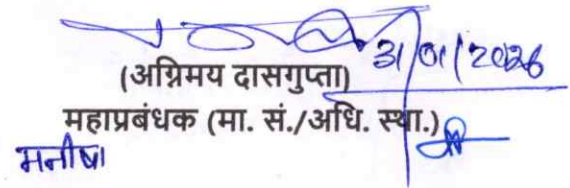 31/01/2026
(अग्निमय दासगुप्ता)
महाप्रबंधक (मा. सं./अधि. स्था.)
मनीषा